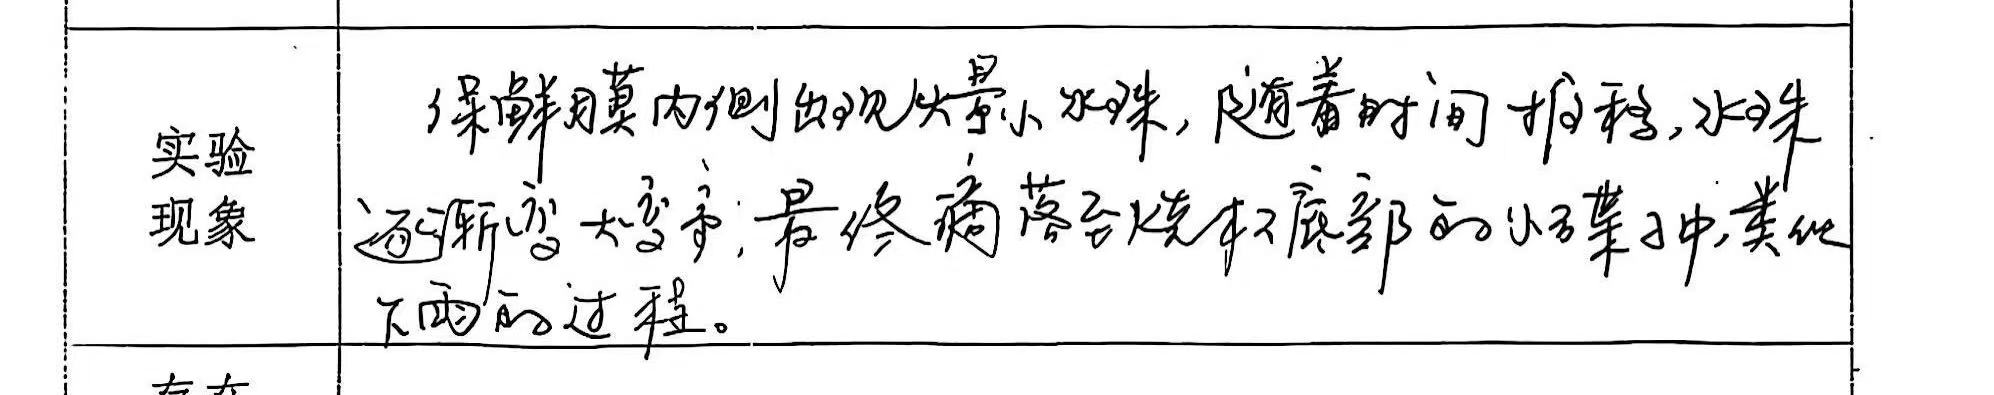 实验
现象
保鲜膜内侧出现大量小水珠，随着时间推移，水珠
逐渐变大变重，最终滴落至烧杯底部的小碟子中，类似
下雨的过程。
存在